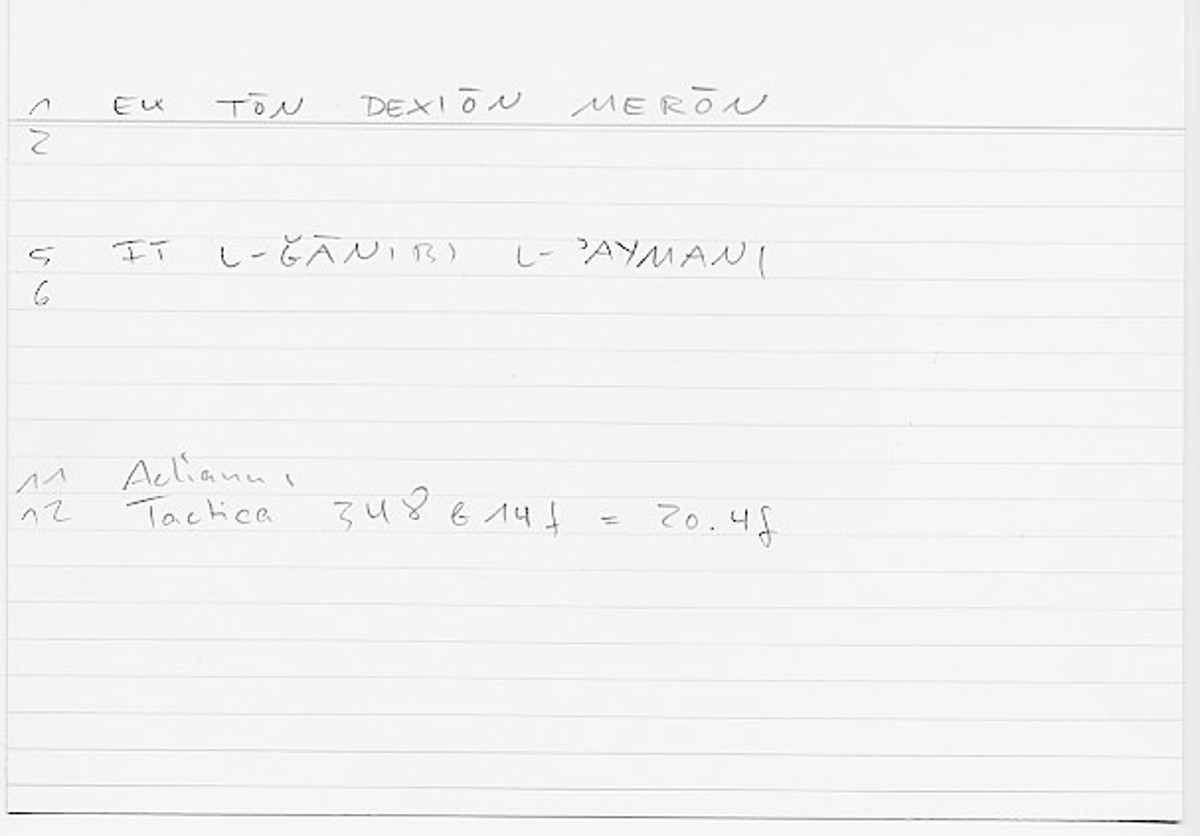 1 EK TŌN DEXIŌN MERŌN
2
5 FĪ L-ǦĀNIBI L-ʾAYMANI
6
11 Aelianus
12 Tactica 348 6 14f = 20.4f